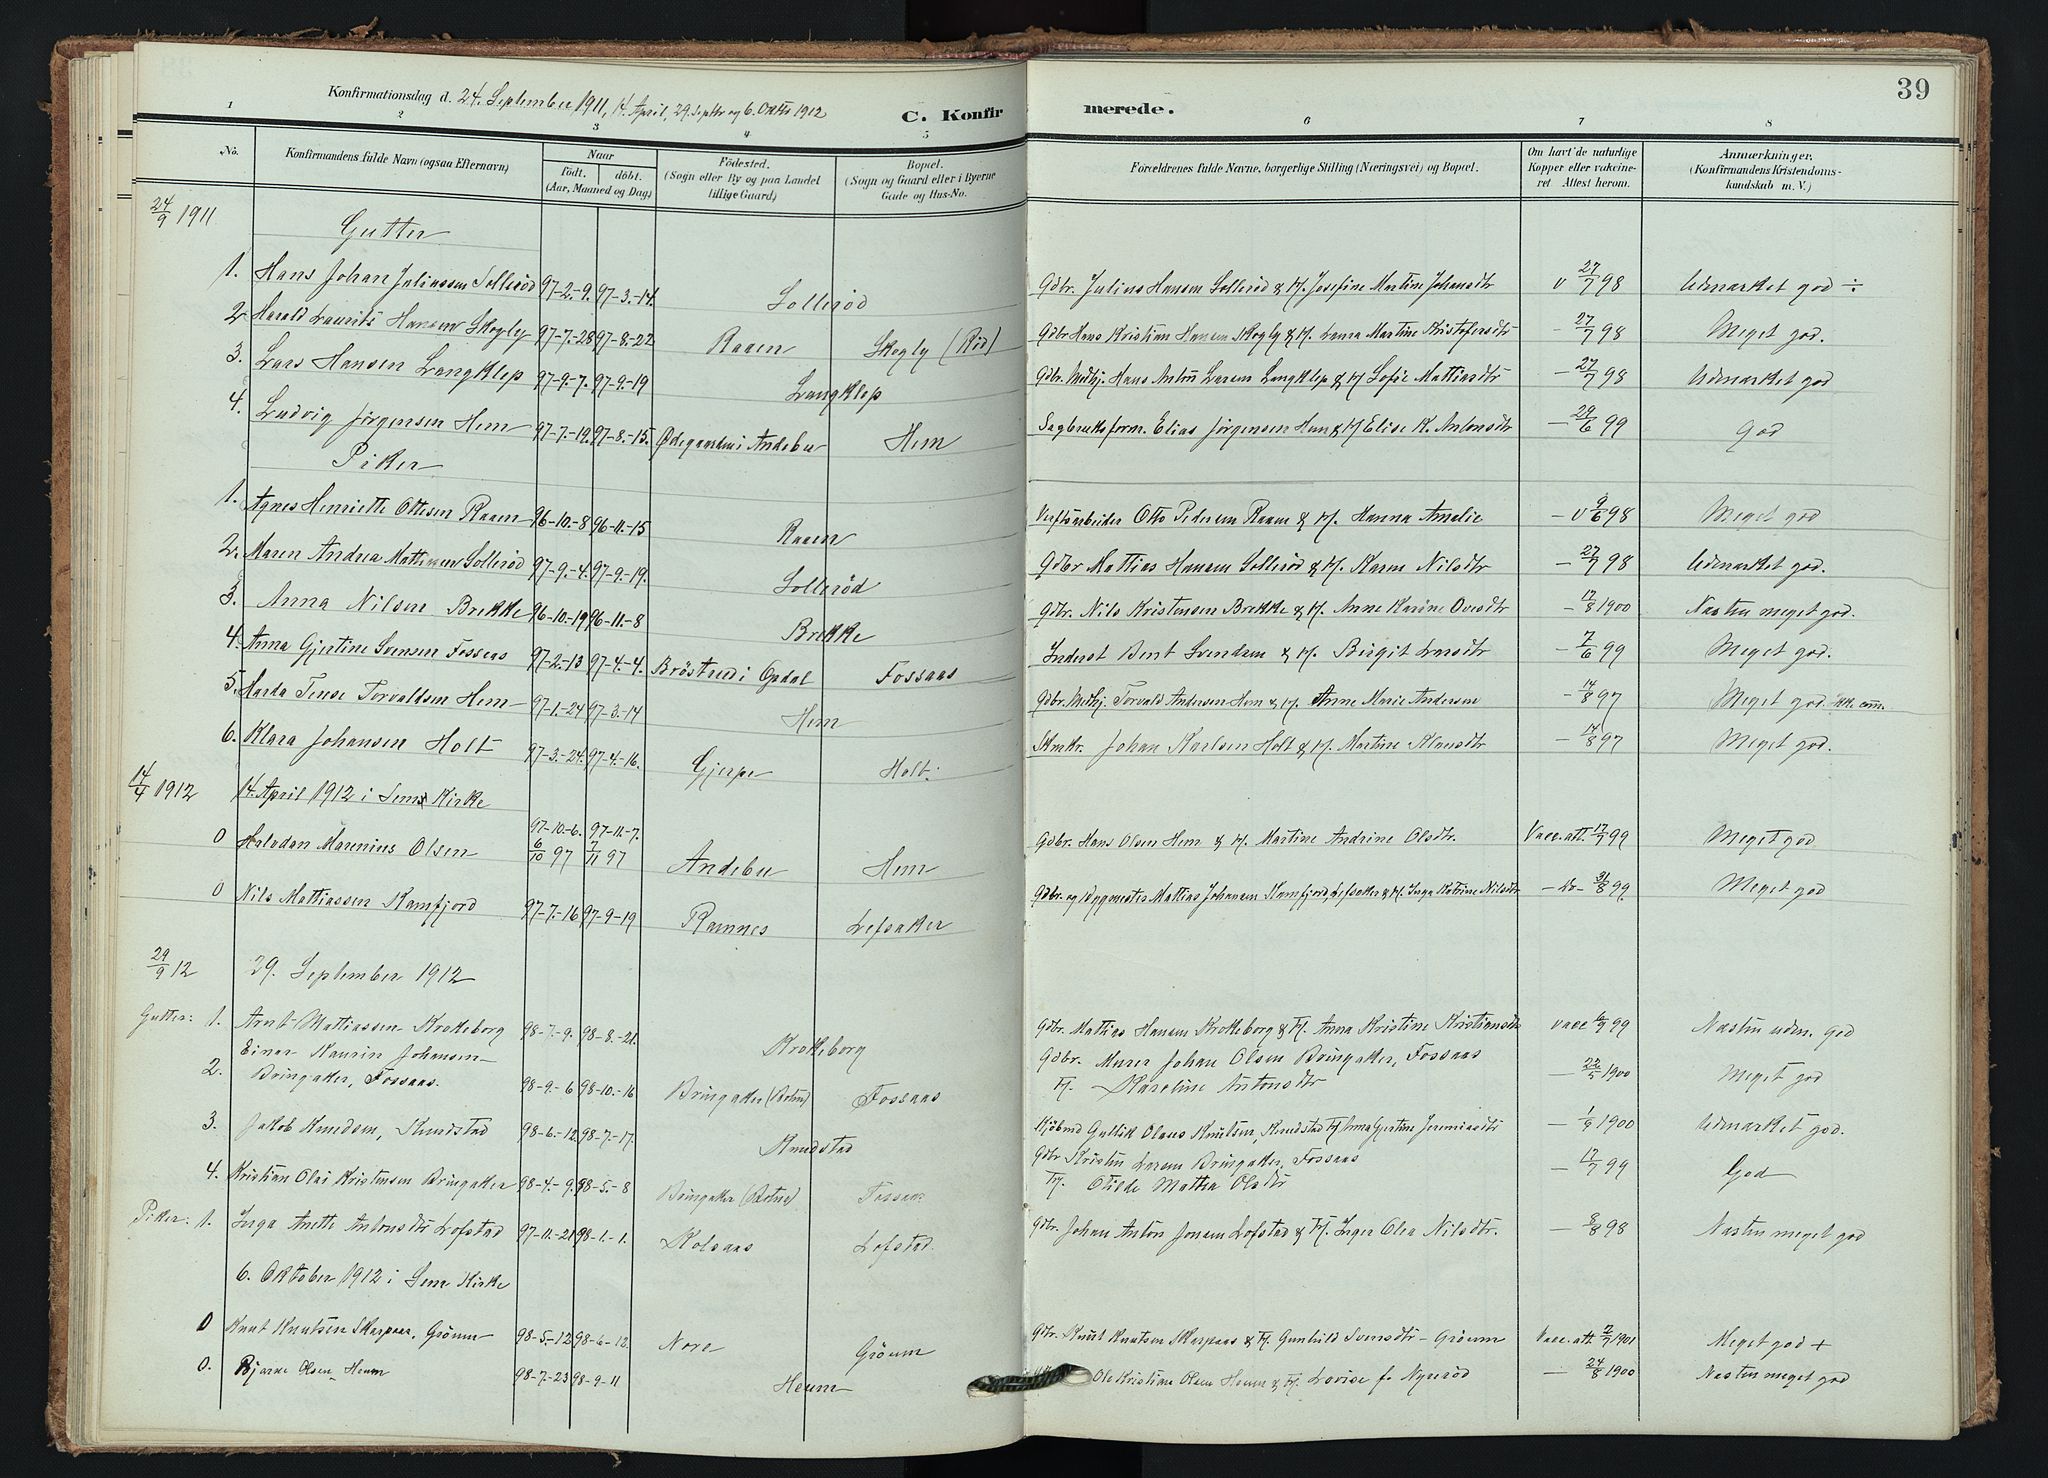 39
Konfirmationsdag d. 24. September 1911, 14 April, 29. Septbr og 6. Oktbr 1912 C. Konfir merede.
1 2 3 4 5 6 7 8
No. Konfirmandens fulde Navn (ogsaa Efternavn) Naar født. døbt. (Aar, Maaned og Dag) Fødested. (Sogn eller By og paa Landet tillige Gaard) Bopæl. (Sogn og Gaard eller i Byerne Gade og Hus-No. Forældrenes fulde Navne, borgerlige Stilling (Næringsvei) og Bopæl. Om havt de naturlige Kopper eller vakcineret. Attest herom. Anmærkninger. (Konfirmandens Kristendomskundskab m. V.)
24/9 1911 Gutter
1. Hans Johan Juliussen Sollerød 97-2-9. 97-3-14. Sollerød Gdbr. Julius Hansen Sollerød & H. Josefine Martine Johansdtr v 27/7 98 Udmærket god ÷
2 Harald Laurits Hansen Skogly 97-7-28 97-8-22 Raaen Skogly (Rød) Gdbr Hans Kristian Hansen Skogly & H. Laura Martine Kristofersdtr - 27/7 98 Meget god.
3. Lars Hansen Langklep 97-9-7. 97-9-19 Langklep Gdbr. Medhj. Hans Anton Larsen Langklep & H Sofie Mattiasdtr - 27/7 98 Udmærket god
4. Ludvig Jørgensen Hem 97-7-19. 97-8-15. Ødegaarden i Andebu Hem Sagbruksform. Elias Jørgensen Hem & H Elise K. Antonsdtr - 29/6 99 God
Piker
1. Agnes Henriette Ottesen Raaen 96-10-8 96-11-15 Raaen Verftsarbeider Otto Pedersen Raaen & H. Hanna Amalie - v 9/6 98 Meget god
2. Maren Andrea Mathisen Sollerød 97-9-4. 97-9-19. Sollerød Gdbr Mattias Hansen Sollerød & H. Karen Nilsdtr - 27/7 98 Udmærket god.
3. Anna Nilsen Brekke 96-10-19 96-11-8 Brekke Gdbr. Nils Kristensen Brekke & H. Anne Karine Ovesdtr - 17/8 1900 Næsten meget god.
4. Anna Gjertine Svensen Fossaas 97-2-13 97-4-4. Brøstrud i Opdal Fossaas Inderst Bent Svendsen & H. Birgit Larsdtr - 7/6 99 Meget god.
5. Marta Tense Torvaldsen Hem 97-1-24 97-3-14 Hem Gdbr. Medhj. Torvald Andersen Hem & H. Anne Marie Andersen - 14/8 97 Meget god. ikke com.
6. Klara Johansen Holt 97-3-24. 97-4-16. Gjerpe Holt. Smkr. Johan Karlsen Holt & H. Martine Klausdtr - 14/8 97 Meget god.
14/4 1912 14 April 1912 i Sem Kirke
0 Halvdan Marenius Olsen 97-10-6. 97-11-7. 6/10 97 7/11 97 Andebu Hem Gdbr. Hans Olsen Hem & H. Martine Andrine Olsdtr. Vacc. att. 17/7 99 Meget god
0 Nils Mattiassen Kamfjord 97-7-16 97-9-19 Ramnes Lefsaker Gdbr. og Bygmester Mattias Johansen Kamfjord, Lefsaker & H. Inga Katrine Nilsdtr - Do - 31/8 99. Meget god
29/9 12 29. September 1912
Gutter: 1. Arnt Mattiassen Krokeborg 98-7-9. 98-8-21. Krokeborg Gdbr. Mattias Hansen Krokeborg & H. Anna Kristine Kristiansdtr vacc 6/7 99 Næsten udm. god
2. Einar Kaurin Johansen Bringaker, Fossaas. 98-9-6 98-10-16 Bringaker (Botne) Fossaas Gdbr. Murer Johan Olsen Bringaker, Fossaas H. Karoline Antonsdtr - 22/5 1900 Meget god
3. Jakob Knudsen, Knudstad 98-6-12 98-7-17. Knudstad Kjøbmd Gullik Olaus Knutsen, Knudstad H Anna Gjertine Jeremiasdtr - 1/9 1900 Udmærket god.
4. Kristian Olai Kristensen Bringaker 98-4-9. 98-5-8 Bringaker (Botne) Fossaas Gdbr Kristen Larsen Bringaker, Fossaas H. Otilde Matea Olsdtr - 17/7 99 God
Piker: 1. Inga Anette Antonsdtr Lofstad 97-11-21 98-1-1. Kolsaas Lofstad. Gdbr. Johan Anton Jonsen Lofstad & H. Inger Olea Nilsdtr. - 8/8 98 Næsten meget god
6. Oktober 1912 i Sem Kirke
0 Knut Knutsen Skarpaas, Grøum 98-5-12 98-6-12. Nore Grøum Gdbr. Knut Knutsen Skarpaas & H. Gunhild Svensdtr - Grøum Vacc. att. 2/7 1901 Meget god +
0. Bjarne Olsen Heum 98-7-23 98-9-11 Heum Ole Kristian Olsen Heum & H. Lovise f. Nyrerød - 24/8 1900 Næsten meget god